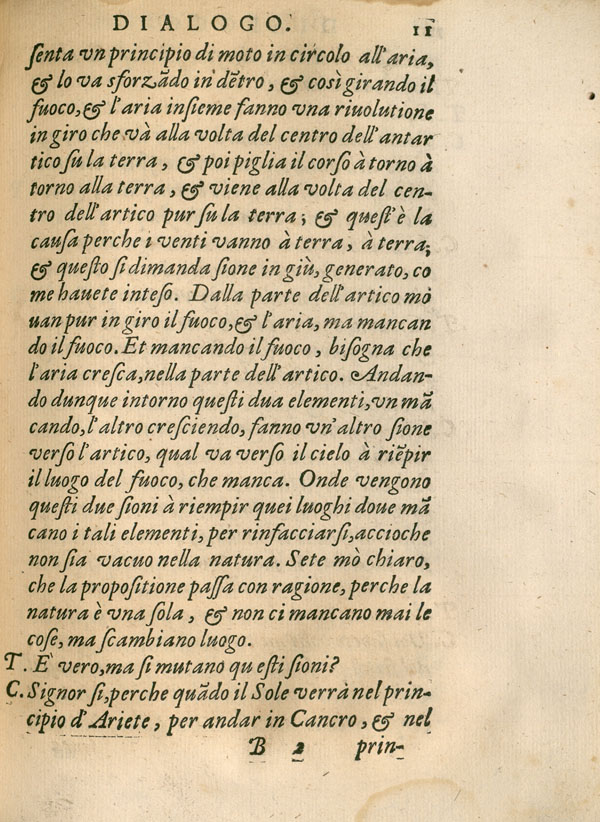 DIALOGO. 11
ſenta vn principio di moto in circolo all'aria,
& lo va sforzãdo in dẽtro, & così girando il
fuoco,& l'aria inſieme fanno vna riuolutione
in giro che và alla volta del centro dell'antar
tico ſu la terra, & poi piglia il corſo à torno à
torno alla terra, & viene alla volta del cen-
tro dell'artico pur ſu la terra; & queſt'è la
cauſa perche i venti vanno à terra, à terra;
& queſto ſi dimanda ſione in giù, generato, co
me hauete inteſo. Dalla parte dell'artico mo
uan pur in giro il fuoco,& l'aria, ma mancan
do il fuoco. Et mancando il fuoco, biſogna che
l'aria creſca,nella parte dell'artico. Andan-
do dunque intorno queſti dua elementi,vn mã
cando,l'altro creſciendo, fanno vn'altro ſione
verſo l'artico, qual va verſo il cielo à riẽpir
il luogo del fuoco, che manca. Onde vengono
queſti due ſioni à riempir quei luoghi doue mã
cano i tali elementi, per rinfacciarſi,accioche
non ſia vacuo nella natura. Sete mò chiaro,
che la propoſitione paſſa con ragione, perche la
natura è vna ſola, & non ci mancano mai le
coſe, ma ſcambiano luogo.
T. E vero,ma ſi mutano qu eſti ſioni?
C. Signor ſi,perche quãdo il Sole verrà nel prin-
cipio d'Ariete, per andar in Cancro, & nel
B 2 prin-